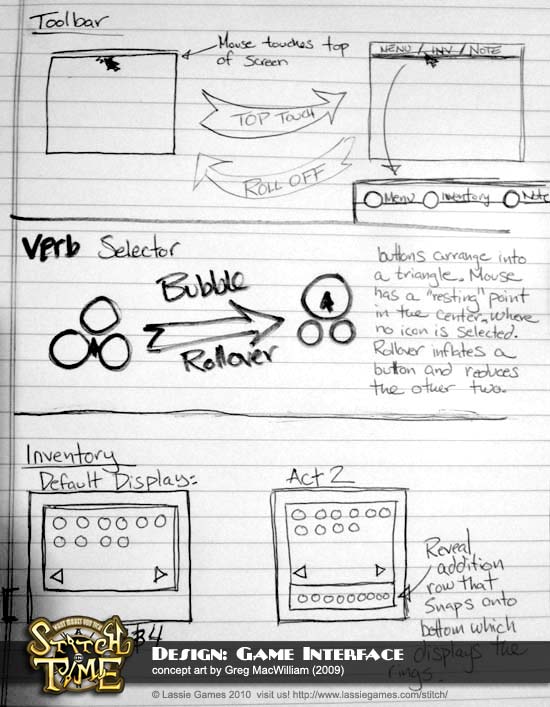 Toolbar
Mouse touches top
of Screen
MENU / INV / NOTE
TOP TOUCH
ROLL OFF
Menu Inventory Note
Verb Selector
Bubble
Rollover
buttons arrange into
a triangle. Mouse
has a "resting" point
in the center, where
no icon is selected.
Rollover inflates a
button and reduces
the other two.
Inventory
Default Displays:
Act 2
Reveal
addition
row that
snaps onto
bottom which
displays the
rings.
A
STITCH
IN
TIME
DESIGN: GAME INTERFACE
concept art by Greg MacWilliam (2009)
© Lassie Games 2010 visit us! http://www.lassiegames.com/stitch/